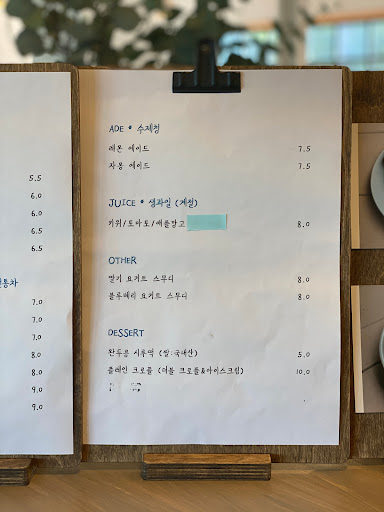 5.5
6.0
6.0
6.5
6.5
통차
7.0
7.0
7.0
8.0
8.0
9.0
9.0
ADE * 수제청
레몬 에이드 7.5
자몽 에이드 7.5
JUICE * 생과일 (계절)
키위/토마토/애플망고 8.0
OTHER
딸기 요거트 스무디 8.0
블루베리 요거트 스무디 8.0
DESSERT
완두콩 시루떡 (쌀:국내산) 5.0
플레인 크로플 (더블 크로플&아이스크림) 10.0